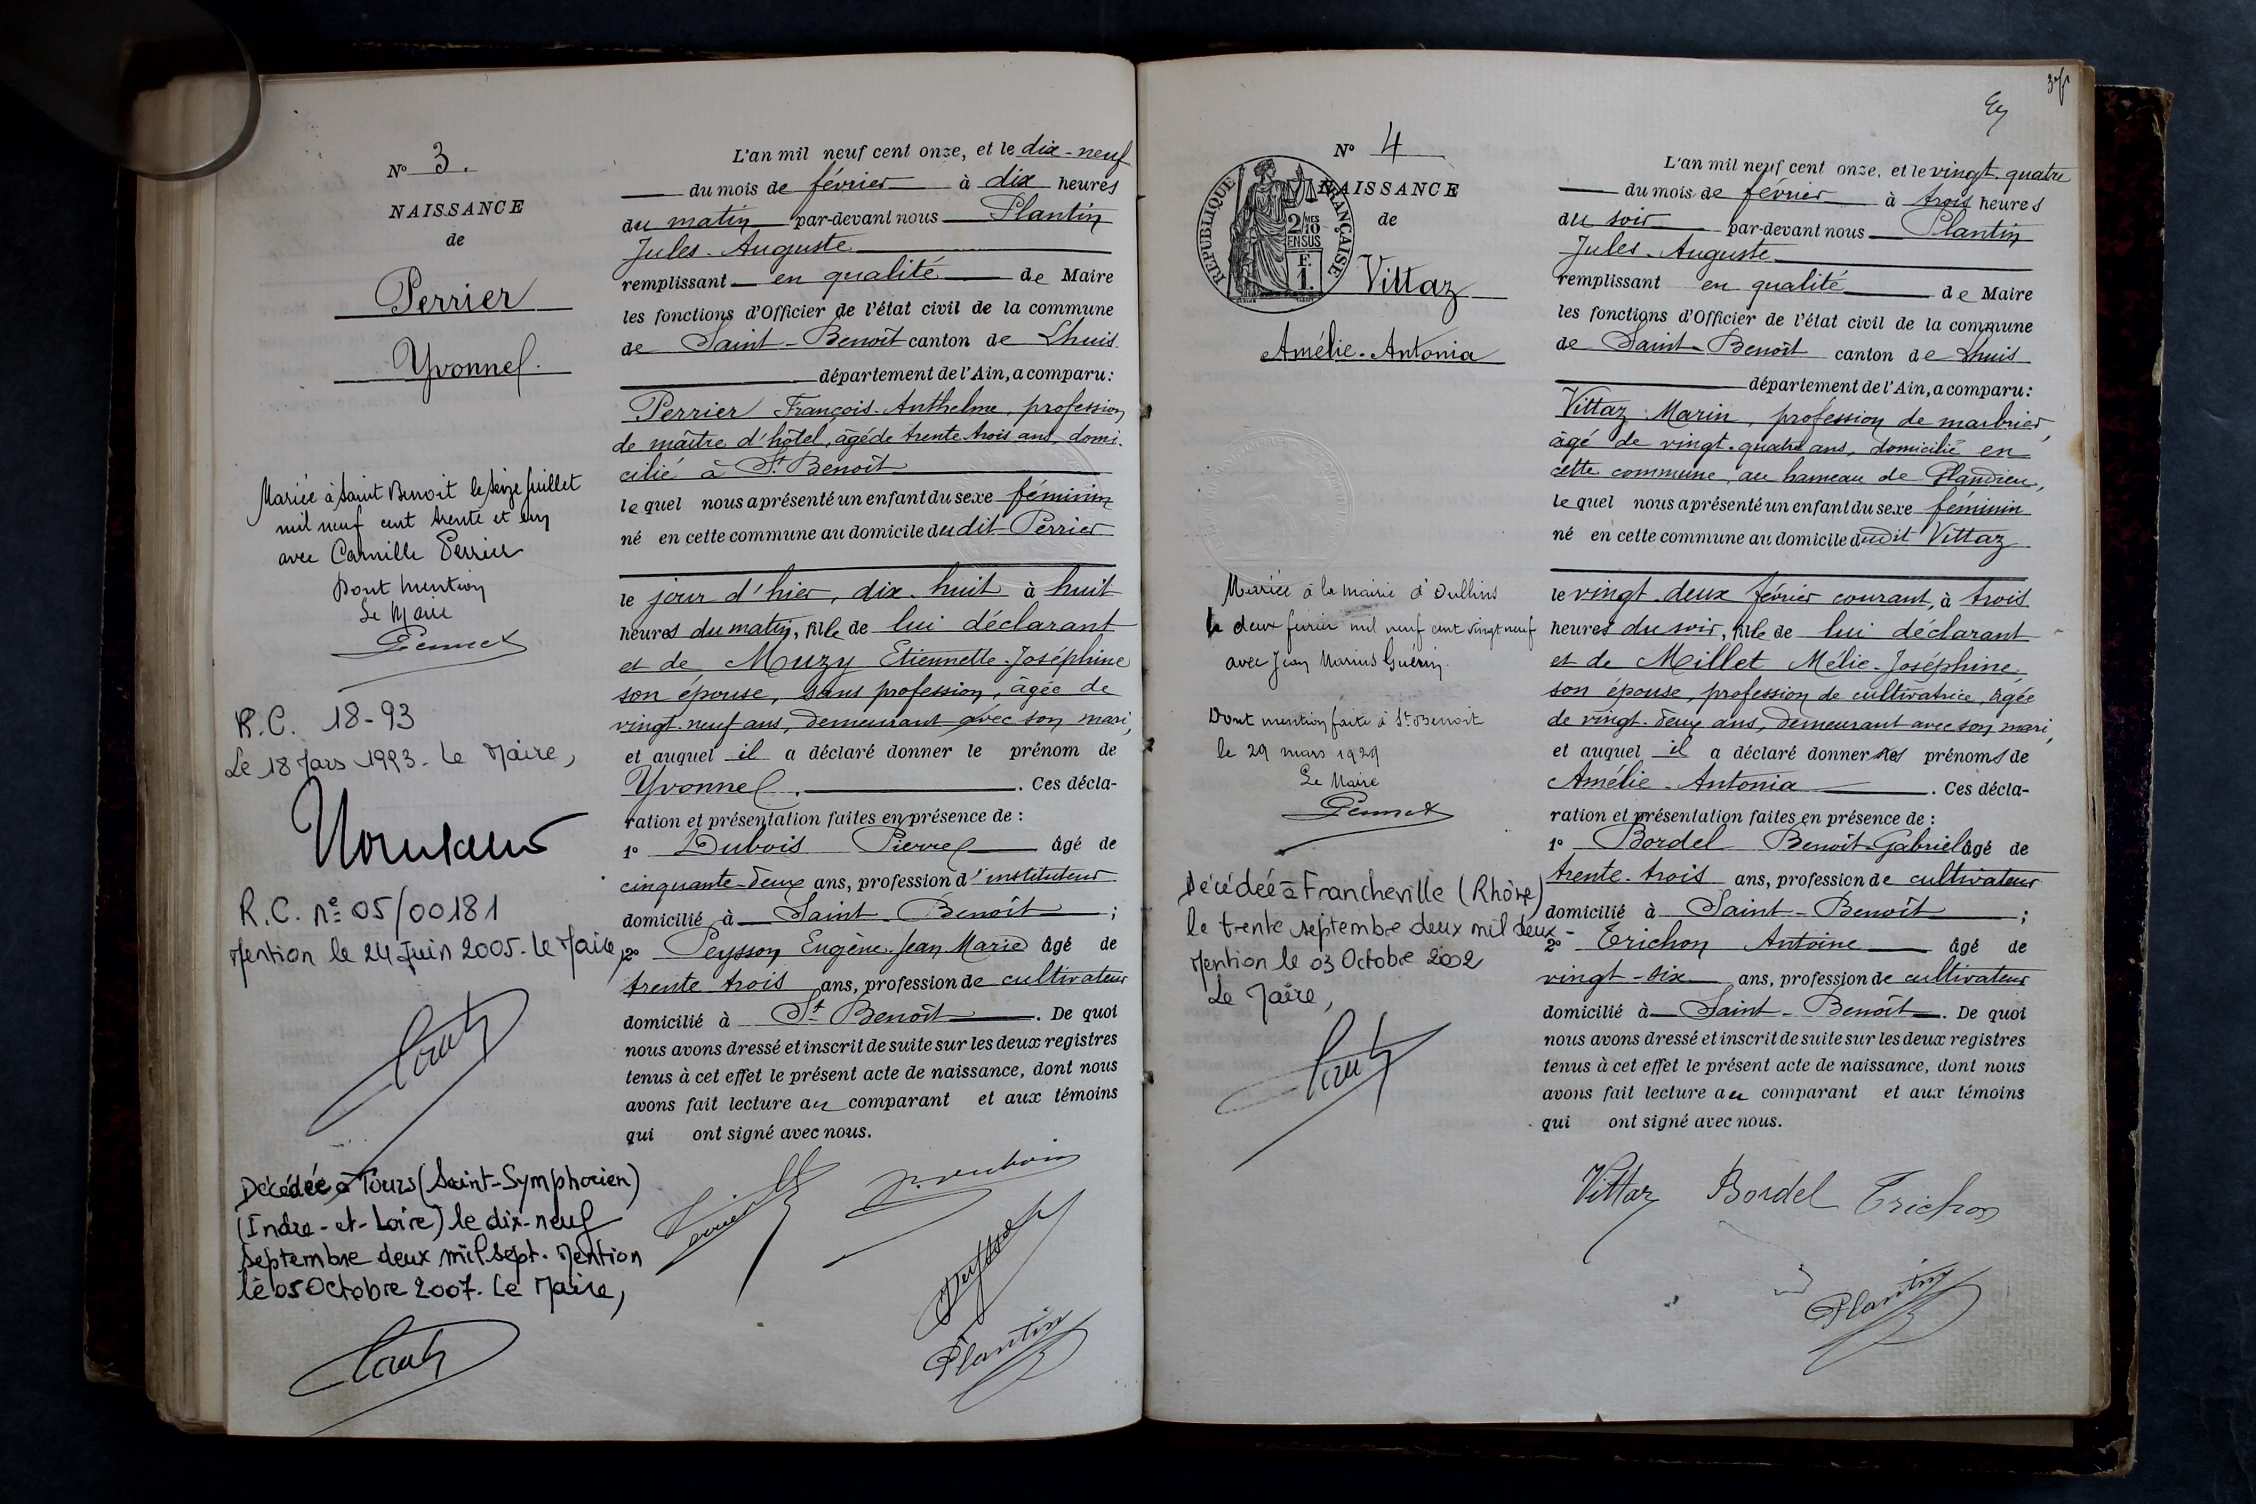 N° 3.
NAISSANCE
de
Perrier
Yvonne.
Mariée à Saint Benoit le seize juillet
mil neuf cent trente et un
avec Camille Perrier
Dont mention
Le Maire
Pennet
R.C. 18-93
Le 18 Mars 1993. Le Maire,
R.C. n° 05/00181
Mention le 24 Juin 2005. Le Maire,
Décédée à Tours (Saint-Symphorien)
(Indre-et-Loire) le dix-neuf
septembre deux mil sept. Mention
le 05 Octobre 2007. Le Maire,
L'an mil neuf cent onze, et le dix-neuf
du mois de février à dix heures
du matin par-devant nous Plantin
Jules-Auguste
remplissant en qualité de Maire
les fonctions d'Officier de l'état civil de la commune
de Saint-Benoît canton de Lhuis
département de l'Ain, a comparu:
Perrier François-Anthelme, profession
de maître d'hôtel, âgé de trente-trois ans, domi-
cilié à St Benoît
lequel nous a présenté un enfant du sexe féminin
né en cette commune au domicile du dit Perrier
le jour d'hier, dix-huit à huit
heures du matin, fille de lui déclarant
et de Muzy Etiennette-Joséphine
son épouse, sans profession, âgée de
vingt-neuf ans, demeurant avec son mari,
et auquel il a déclaré donner le prénom de
Yvonne. Ces décla-
ration et présentation faites en présence de :
1° Dubois Pierre âgé de
cinquante-deux ans, profession d'instituteur
domicilié à Saint-Benoît ;
2° Peysson Eugène-Jean Marie âgé de
trente trois ans, profession de cultivateur
domicilié à St Benoît. De quoi
nous avons dressé et inscrit de suite sur les deux registres
tenus à cet effet le présent acte de naissance, dont nous
avons fait lecture au comparant et aux témoins
qui ont signé avec nous.
Perrier P. Dubois
Peysson
Plantin
N° 4
RÉPUBLIQUE FRANÇAISE
2/10 MES
EN SUS
F.
1.
NAISSANCE
de
Vittaz
Amélie-Antonia
Mariée à la mairie d'Oullins
le deux février mil neuf cent vingt neuf
avec Jean Marius Guérin
Dont mention faite à St Benoit
le 29 mars 1929
Le Maire
Pennet
Décédée à Francheville (Rhône)
le trente septembre deux mil deux -
Mention le 03 Octobre 2002
Le Maire,
L'an mil neuf cent onze, et le vingt-quatre
du mois de février à trois heures
du soir par-devant nous Plantin
Jules-Auguste
remplissant en qualité de Maire
les fonctions d'Officier de l'état civil de la commune
de Saint-Benoît canton de Lhuis
département de l'Ain, a comparu:
Vittaz Marin, profession de marbrier,
âgé de vingt-quatre ans, domicilié en
cette commune, au hameau de Glandieu,
lequel nous a présenté un enfant du sexe féminin
né en cette commune au domicile dudit Vittaz
le vingt-deux février courant, à trois
heures du soir, fille de lui déclarant
et de Millet Mélie-Joséphine,
son épouse, profession de cultivatrice, âgée
de vingt-deux ans, demeurant avec son mari,
et auquel il a déclaré donner les prénoms de
Amélie-Antonia. Ces décla-
ration et présentation faites en présence de :
1° Bordel Benoît-Gabriel âgé de
trente-trois ans, profession de cultivateur
domicilié à Saint-Benoît ;
2° Trichon Antoine âgé de
vingt-six ans, profession de cultivateur
domicilié à Saint-Benoît. De quoi
nous avons dressé et inscrit de suite sur les deux registres
tenus à cet effet le présent acte de naissance, dont nous
avons fait lecture au comparant et aux témoins
qui ont signé avec nous.
Vittaz Bordel Trichon
Plantin